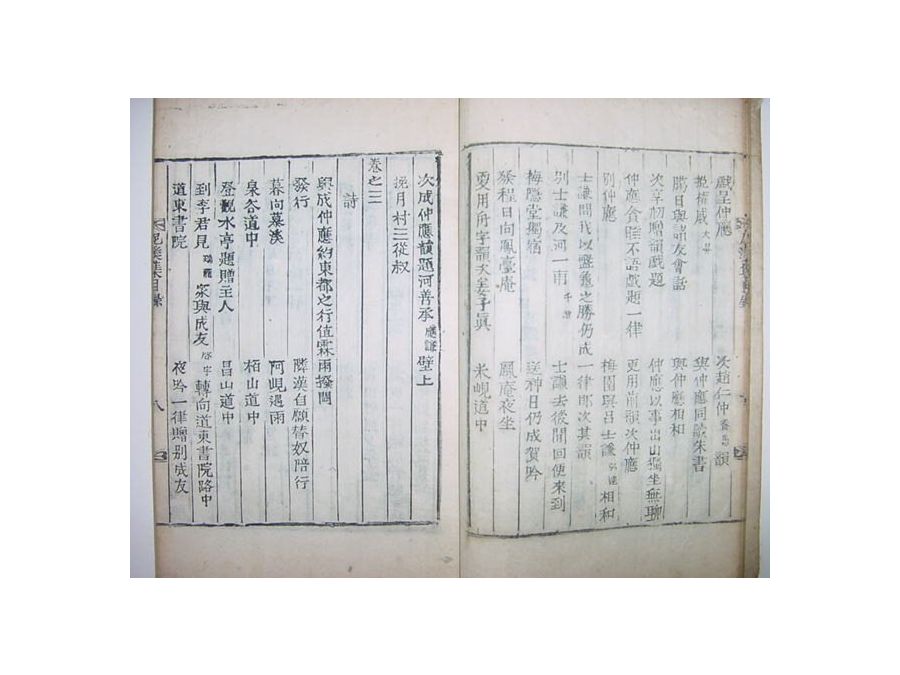 戲呈仲應 次趙仁仲韻
挽權戚 與仲應同讀朱書
臘日與諸友會話 與仲應相和
次辛韌贈韻戲題 仲應以事出山獨坐無聊
仲應貪睡不語戲題一律 更用前韻次仲應
別仲應 梅園與呂士謙相和
士謙問我以盤龜之勝仍成一律卽次其韻
別士謙及河一甫 士謙去後聞回便來到
梅隱堂獨宿 送神日仍成賀吟
發程日向鳳臺庵 願庵夜坐
更用舟字韻大姜子眞 米峴道中
次成仲應韻題河善承應謙壁上
挽月村三從叔
卷之三
詩
與成仲應約東都之行値霖雨撥悶
發行 隣漢自願替奴陪行
暮向墓溪 阿峴遇雨
泉谷道中 栢山道中
登觀水亭題贈主人 昌山道中
到李君見瑞龍家與成友轉向道東書院路中
道東書院 夜吟一律贈別成友
集目錄 八